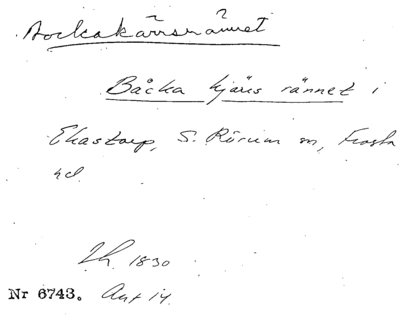 Bockakärrsrännet
Båcka kjärs rännet i
Ekastorp, S. Rörum sn, Frosta
hd.
Lh. 1830
Nr 6743. Aut 14.